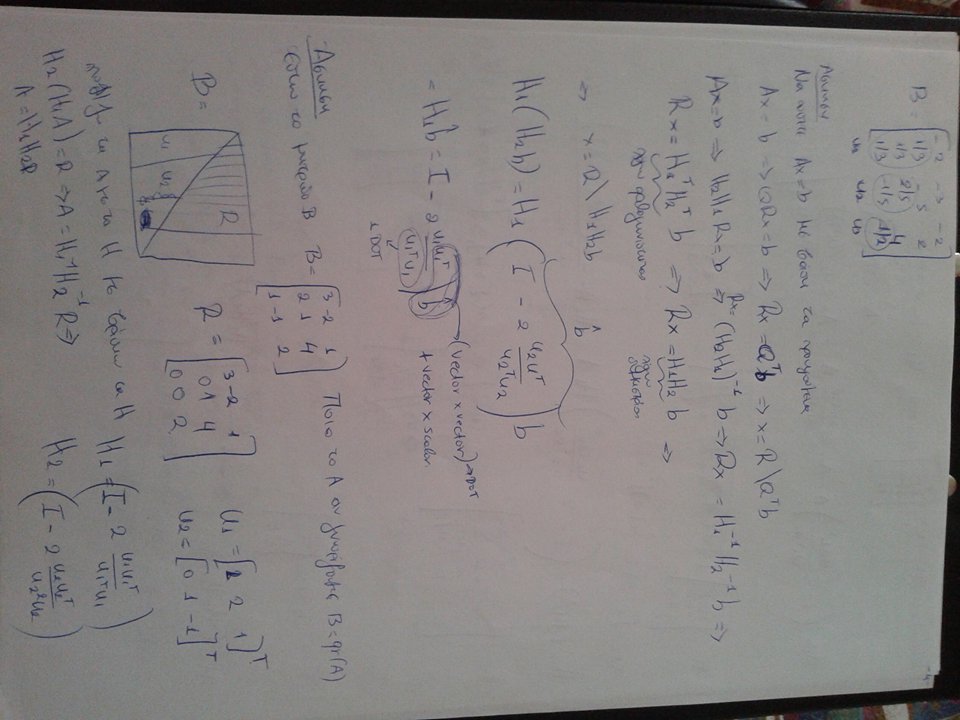 B = [-2 -5 -2
1/3 -5 2
1/3 2/5 4
1/3 -1/5 1/2]
u1 u2 u3
Άσκηση
Να λυθεί Ax=b με βάση τα
Ax = b => QRx = b => Rx = Qᵀb => x = R \ Qᵀb
Ax=b => H2H1Rx=b => Rx=(H2H1)⁻¹ b => Rx = H1⁻¹H2⁻¹b =>
Rx = H1ᵀH2ᵀ b => Rx = H1H2 b =>
=> x = R \ H1H2b
b̂
H1(H2b) = H1 (I - 2 u2uᵀ/u2ᵀu2) b
= H1b̂ = I - 2 u1u1ᵀ/u1ᵀu1 b̂
(vector x vector) → DOT
1 DOT
+ vector x scalar
Άσκηση
Έστω το μητρώο B B = [3 -2 1
2 1 4
1 -1 2] Ποιο το A αν γνωρίζετε B=qr(A)
B = u1 u2 R
R = [3 -2 1
0 1 4
0 0 2]
u1 = [1 2 1]ᵀ
u2 = [0 1 -1]ᵀ
H1 = (I - 2 u1u1ᵀ/u1ᵀu1)
H2(H1A) = R => A = H1⁻¹H2⁻¹R =>
H2 = (I - 2 u2u2ᵀ/u2ᵀu2)
A = H1H2R